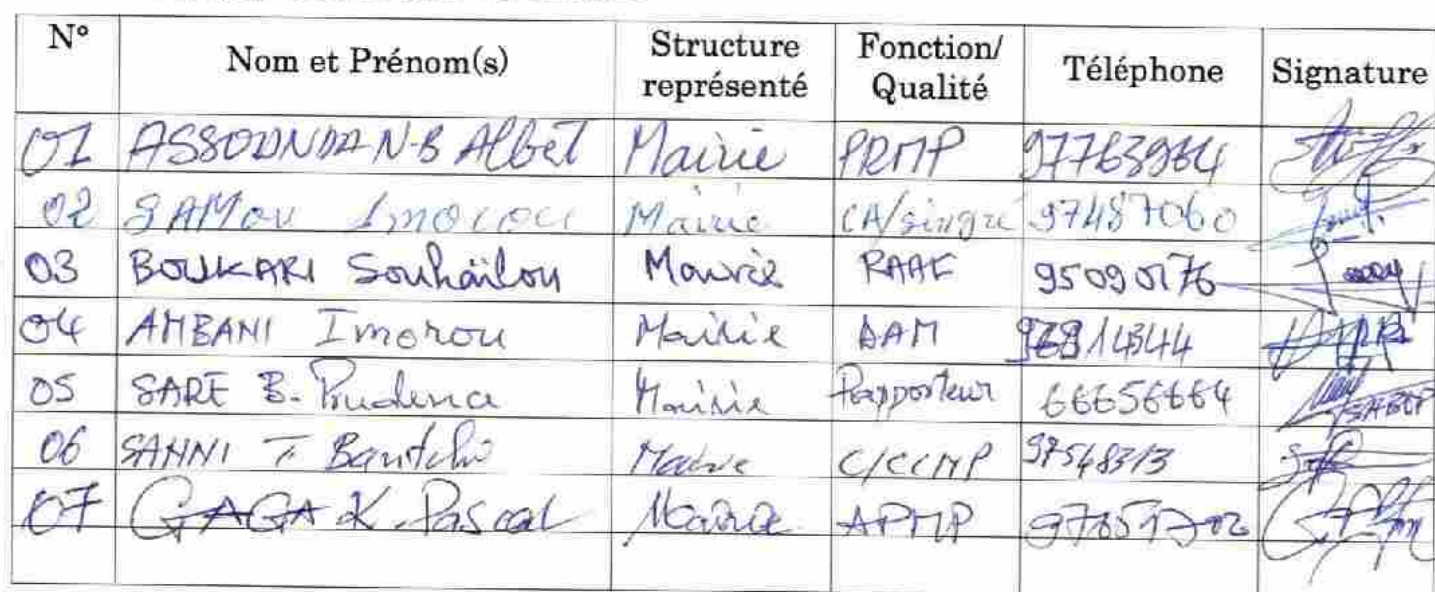 N° Nom et Prénom(s) Structure représenté Fonction/ Qualité Téléphone Signature
01 ASSOUNDA N-B Albet Mairie PRMP 97763964
02 SAMOU Imorou Mairie CA/singré 97487060
03 BOUKARI Souhaïlou Mairie RAAF 95090176
04 AMBANI Imorou Mairie DAM 14344
05 SARE B. Prudence Mairie Rapporteur 66656664
06 SANNI T. Bantchi Mairie C/CCMP 97548313
07 GAGA K. Pascal Mairie APMP